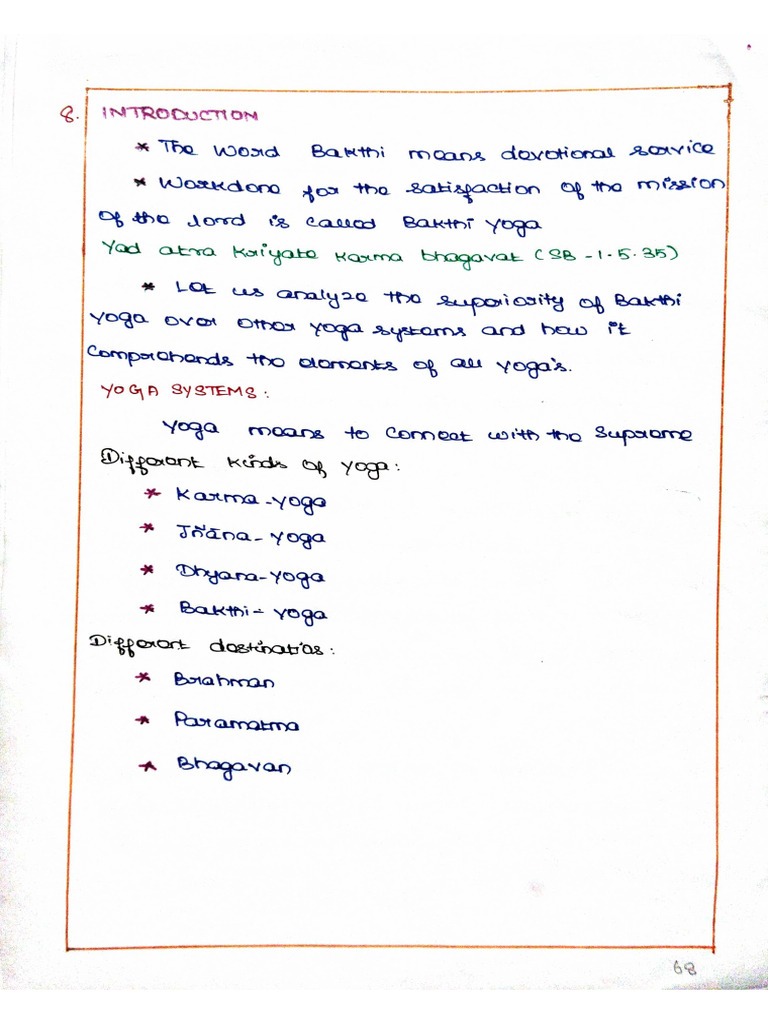 8. INTRODUCTION
* The Word Bakthi means devotional service
* Workdone for the satisfaction of the mission
of the lord is called Bakthi yoga
Yad atra kriyate karma bhagavat (SB -1.5.35)
* Let us analyze the superiority of Bakthi
yoga over other yoga systems and how it
Comprehends the elements of all yoga's.
YOGA SYSTEMS:
Yoga means to connect with the Supreme
Different kinds of yoga:
* Karma-yoga
* Jñāna-yoga
* Dhyana-yoga
* Bakthi-yoga
Different destinatios:
* Brahman
* Paramatma
* Bhagavan
68